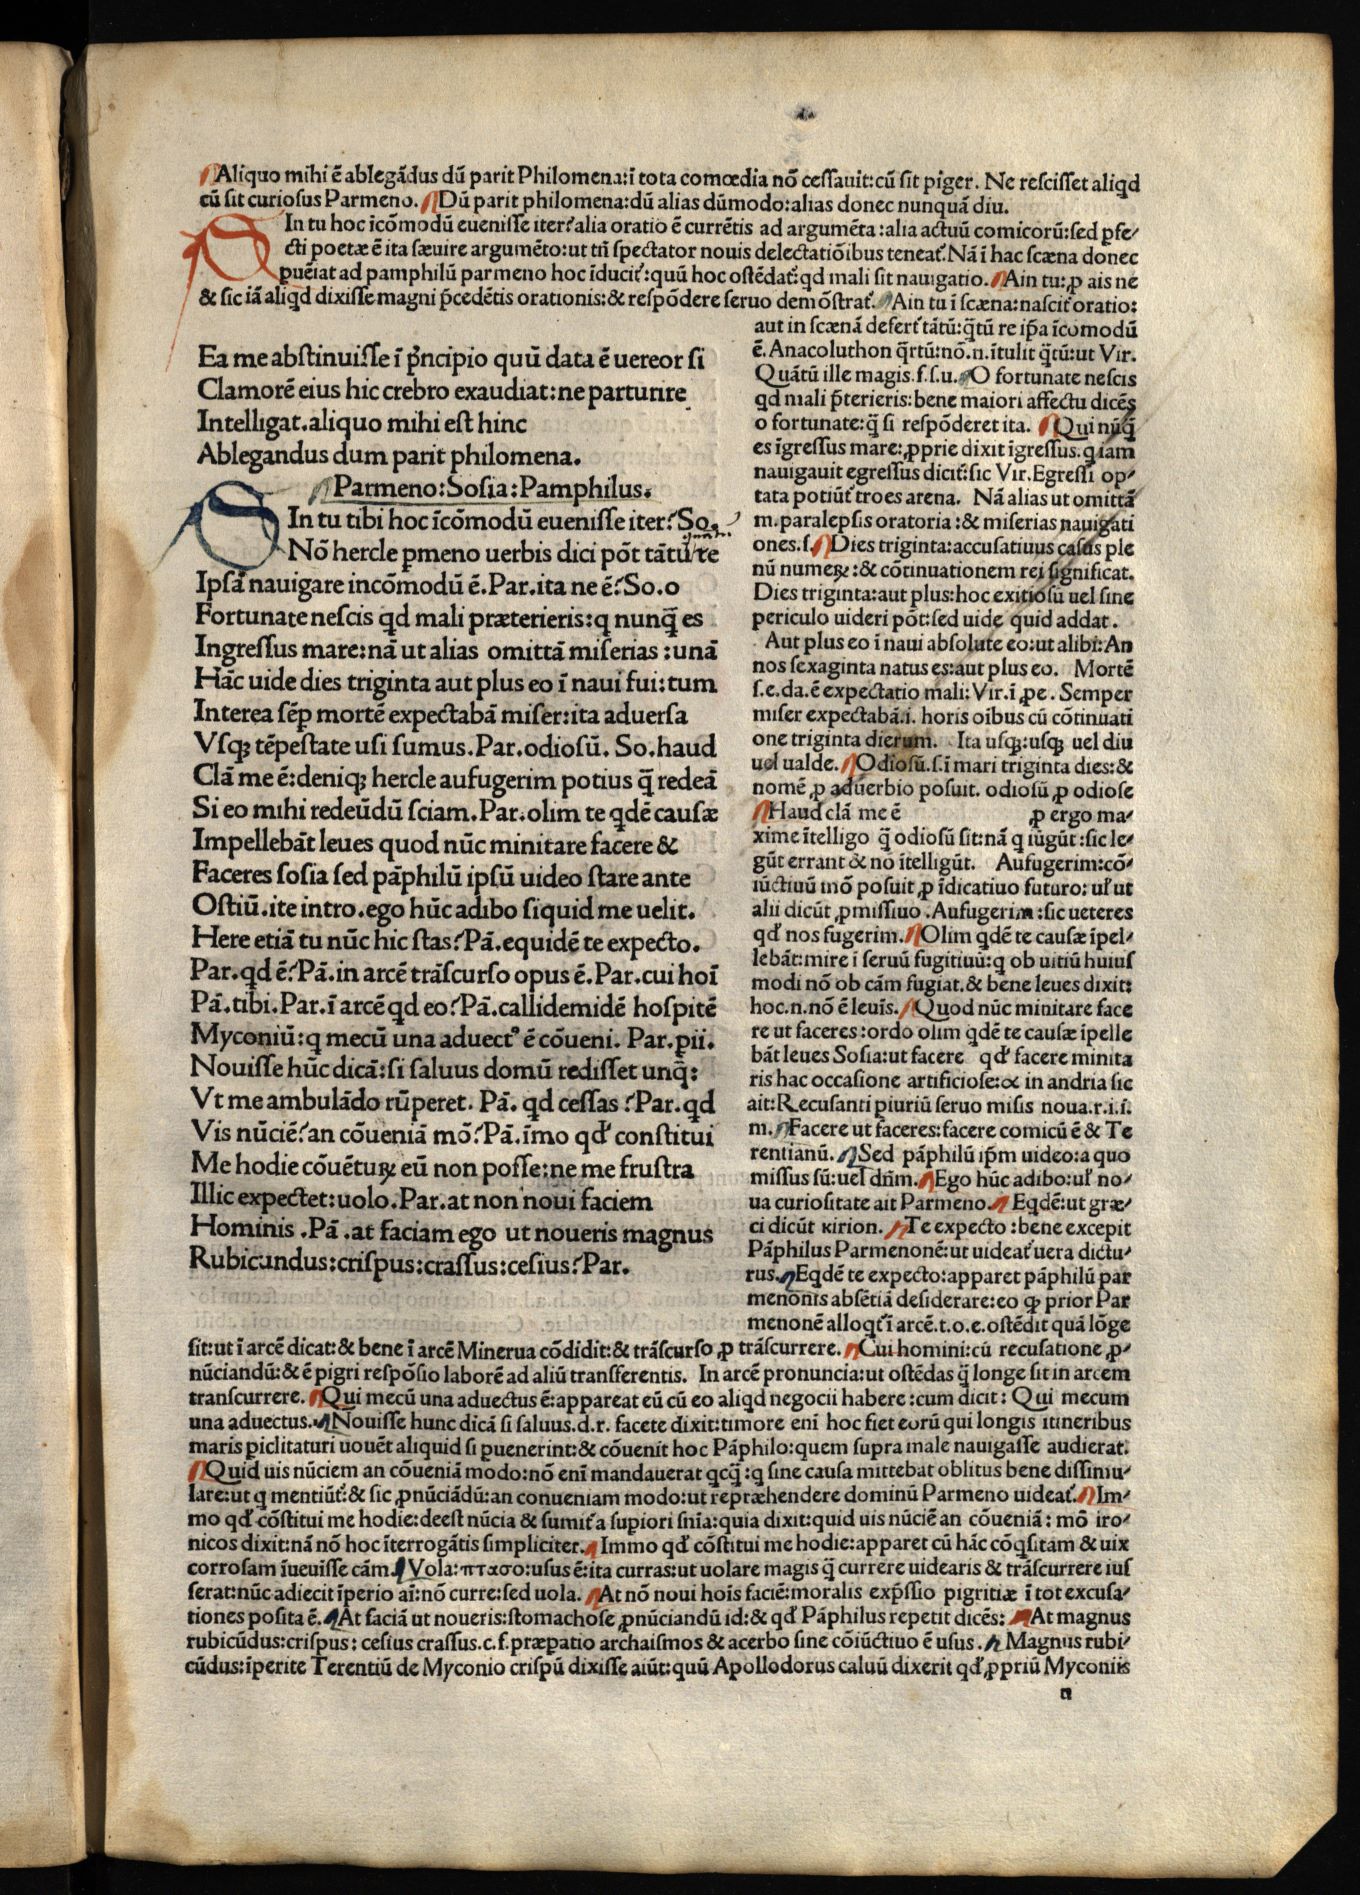 Aliquo mihi ē ablegādus dū parit Philomena:ī tota comœdia nō cessauit:cū sit piger. Ne rescisset aliqd
cū sit curiosus Parmeno. Dū parit philomena:dū alias dūmodo:alias donec nunquā diu.
SIn tu hoc īcōmodū euenisse iter? alia oratio ē currētis ad argumēta:alia actuū comicorū:sed ꝑfe/
cti poetæ ē ita sæuire argumēto:ut tn̄ spectator nouis delectatiōibus teneat̄. Nā ī hac scæna donec
pueīat ad pamphilū parmeno hoc īducit̄:quū hoc ostēdat̄:qd mali sit nauigatio. Ain tu:ꝓ ais ne
& sic iā aliqd dixisse magni p̄cedētis orationis:& respōdere seruo demōstrat̄. Ain tu ī scæna:nascit̄ oratio:
Ea me abstinuisse ī p̄ncipio quū data ē uereor si
Clamorē eius hic crebro exaudiat:ne parturire
Intelligat.aliquo mihi est hinc
Ablegandus dum parit philomena.
Parmeno:Sosia:Pamphilus.
SIn tu tibi hoc īcōmodū euenisse iter? So.
Nō hercle ꝑmeno uerbis dici pōt tātū re
Ipsā nauigare incōmodū ē.Par.ita ne ē? So.o
Fortunate nescis qd mali præterieris:q nunq̄ es
Ingressus mare:nā ut alias omittā miserias:unā
Hāc uide dies triginta aut plus eo ī naui fui:tum
Interea sēꝑ mortē expectabā miser:ita aduersa
Vsqꝫ tēpestate usi sumus.Par.odiosū. So.haud
Clā me ē:deniqꝫ hercle aufugerim potius q̄ redeā
Si eo mihi redeūdū sciam.Par.olim te qdē causæ
Impellebāt leues quod nūc minitare facere &
Faceres sosia sed pāphilū ipsū uideo stare ante
Ostiū.ite intro.ego hūc adibo siquid me uelit.
Here etiā tu nūc hic stas? Pā.equidē te expecto.
Par.qd ē? Pā.in arcē trāscurso opus ē.Par.cui hoī
Pā.tibi.Par.ī arcē qd eo? Pā.callidemidē hospitē
Myconiū:q mecū una aduectꝰ ē cōueni. Par.pii.
Nouisse hūc dicā:si saluus domū redisset unq̄:
Vt me ambulādo rūperet. Pā. qd cessas? Par.qd
Vis nūciē? an cōueniā mō? Pā.īmo qd' constitui
Me hodie cōuētuꝝ eū non posse:ne me frustra
Illic expectet:uolo.Par.at non noui faciem
Hominis.Pā.at faciam ego ut noueris magnus
Rubicundus:crispus:crassus:cesius? Par.
aut in scænā defert̄ tātū:q̄tū re ip̄a īcomodū
ē. Anacoluthon q̄rtū:nō.n.ītulit q̄tū:ut Vir.
Quātū ille magis.f.s.u. O fortunate nescis
qd mali p̄terieris:bene maiori affectu dicēs
o fortunate:q̄ si respōderet ita. Qui nūq̄
es īgressus mare:ꝓprie dixit īgressus.q iam
nauigauit egressus dicit̄:sic Vir.Egressi op/
tata potiūt̄ troes arena. Nā alias ut omittā
m.paralepsis oratoria:& miserias nauigati
ones.s. Dies triginta:accusatiuus casus ple
nū numeꝝ:& cōtinuationem rei significat.
Dies triginta:aut plus:hoc exitiosū uel sine
periculo uideri pōt:sed uide quid addat.
Aut plus eo ī naui absolute eo:ut alibi:An
nos sexaginta natus es:aut plus eo. Mortē
s.e.da.ē expectatio mali:Vir.ī ꝓe. Semper
miser expectabā.i. horis oībus cū cōtinuati
one triginta dierum. Ita usqꝫ:usqꝫ uel diu
uel ualde. Odiosū.s.ī mari triginta dies:&
nomē ꝓ aduerbio posuit. odiosū ꝓ odiose
Haud clā me ē ꝓ ergo ma/
xime ītelligo q̄ odiosū sit:nā q iūgūt:sic le/
gūt errant & nō ītelligūt. Aufugerim:cō/
iūctiuū mō posuit ꝓ īdicatiuo futuro: ul' ut
alii dicūt ꝓmissiuo.Aufugerim:sic ueteres
qd' nos fugerim. Olim qdē te causæ īpel/
lebāt:mire ī seruū fugitiuū:q ob uitiū huius
modi nō ob cām fugiat.& bene leues dixit:
hoc.n.nō ē leuis. Quod nūc minitare face
re ut faceres:ordo olim qdē te causæ īpelle
bāt leues Sosia:ut facere qd' facere minita
ris hac occasione artificiose:& in andria sic
ait:Recusanti piuriū seruo misis noua.r.i.i.
m. Facere ut faceres:facere comicū ē & Te
rentianū. Sed pāphilū ip̄m uideo:a quo
missus sū:uel dn̄m. Ego hūc adibo:ul' no/
ua curiositate ait Parmeno. Eqdē:ut græ/
ci dicūt κirion. Te expecto:bene excepit
Pāphilus Parmenonē:ut uideat̄ uera dictu/
rus. Eqdē te expecto:apparet pāphilū par
menonis absētiā desiderare:eo qꝫ prior Par
menonē alloqt̄ ī arcē.t.o.e.ostēdit quā lōge
sit:ut ī arcē dicat:& bene ī arcē Minerua cōdidit:& trāscurso ꝓ trāscurrere. Cui homini:cū recusatione ꝓ/
nūciandū:& ē pigri respōsio laborē ad aliū transferentis. In arcē pronuncia:ut ostēdas q̄ longe sit in arcem
transcurrere. Qui mecū una aduectus ē:appareat eū cū eo aliqd negocii habere:cum dicit: Qui mecum
una aduectus. Nouisse hunc dicā si saluus.d.r. facete dixit:timore enī hoc fiet eorū qui longis itineribus
maris piclitaturi uouēt aliquid si puenerint:& cōuenit hoc Pāphilo:quem supra male nauigasse audierat.
Quid uis nūciem an cōueniā modo:nō enī mandauerat qcq̄:q sine causa mittebat oblitus bene dissimu/
lare:ut q mentiūt̄:& sic ꝓnūciādū:an conueniam modo:ut repræhendere dominū Parmeno uideat̄. Im/
mo qd' cōstitui me hodie:deest nūcia & sumit̄ a supiori sn̄ia:quia dixit:quid uis nūciē an cōueniā: mō iro/
nicos dixit:nā nō hoc īterrogātis simpliciter. Immo qd' cōstitui me hodie:apparet cū hāc cōqsitam & uix
corrosam īueuisse cām. Vola:πτασο:usus ē:ita curras:ut uolare magis q̄ currere uidearis & trāscurrere ius
serat:nūc adiecit īperio aī:nō curre:sed uola. At nō noui hoīs faciē:moralis exp̄ssio pigritiæ ī tot excusa/
tiones posita ē. At faciā ut noueris:stomachose ꝓnūciandū id:& qd' Pāphilus repetit dicēs: At magnus
rubicūdus:crispus: cesius crassus.c.f.præpatio archaismos & acerbo sine cōiūctiuo ē usus. Magnus rubi/
cūdus:īperite Terentiū de Myconio crispū dixisse aiūt:quū Apollodorus caluū dixerit qd' ꝓpriū Myconiis
n